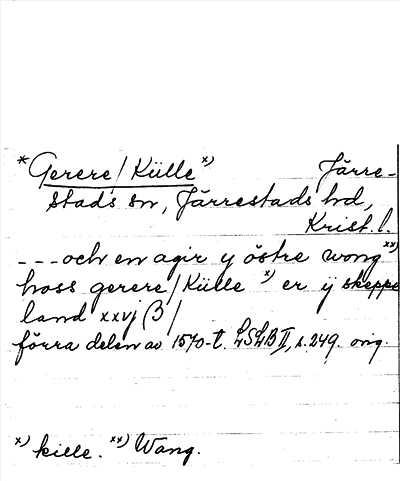 *Gerere/Külle x) Järre-
stads sn, Järrestads hd,
Krist. l.
---och en agir y östre wong xx)
hoss gerere/Külle x) er ÿ skeppe
land xxvj β/
förra delen av 1570-t. LSLB II, s. 249. orig.
x) kille. xx) Wang.